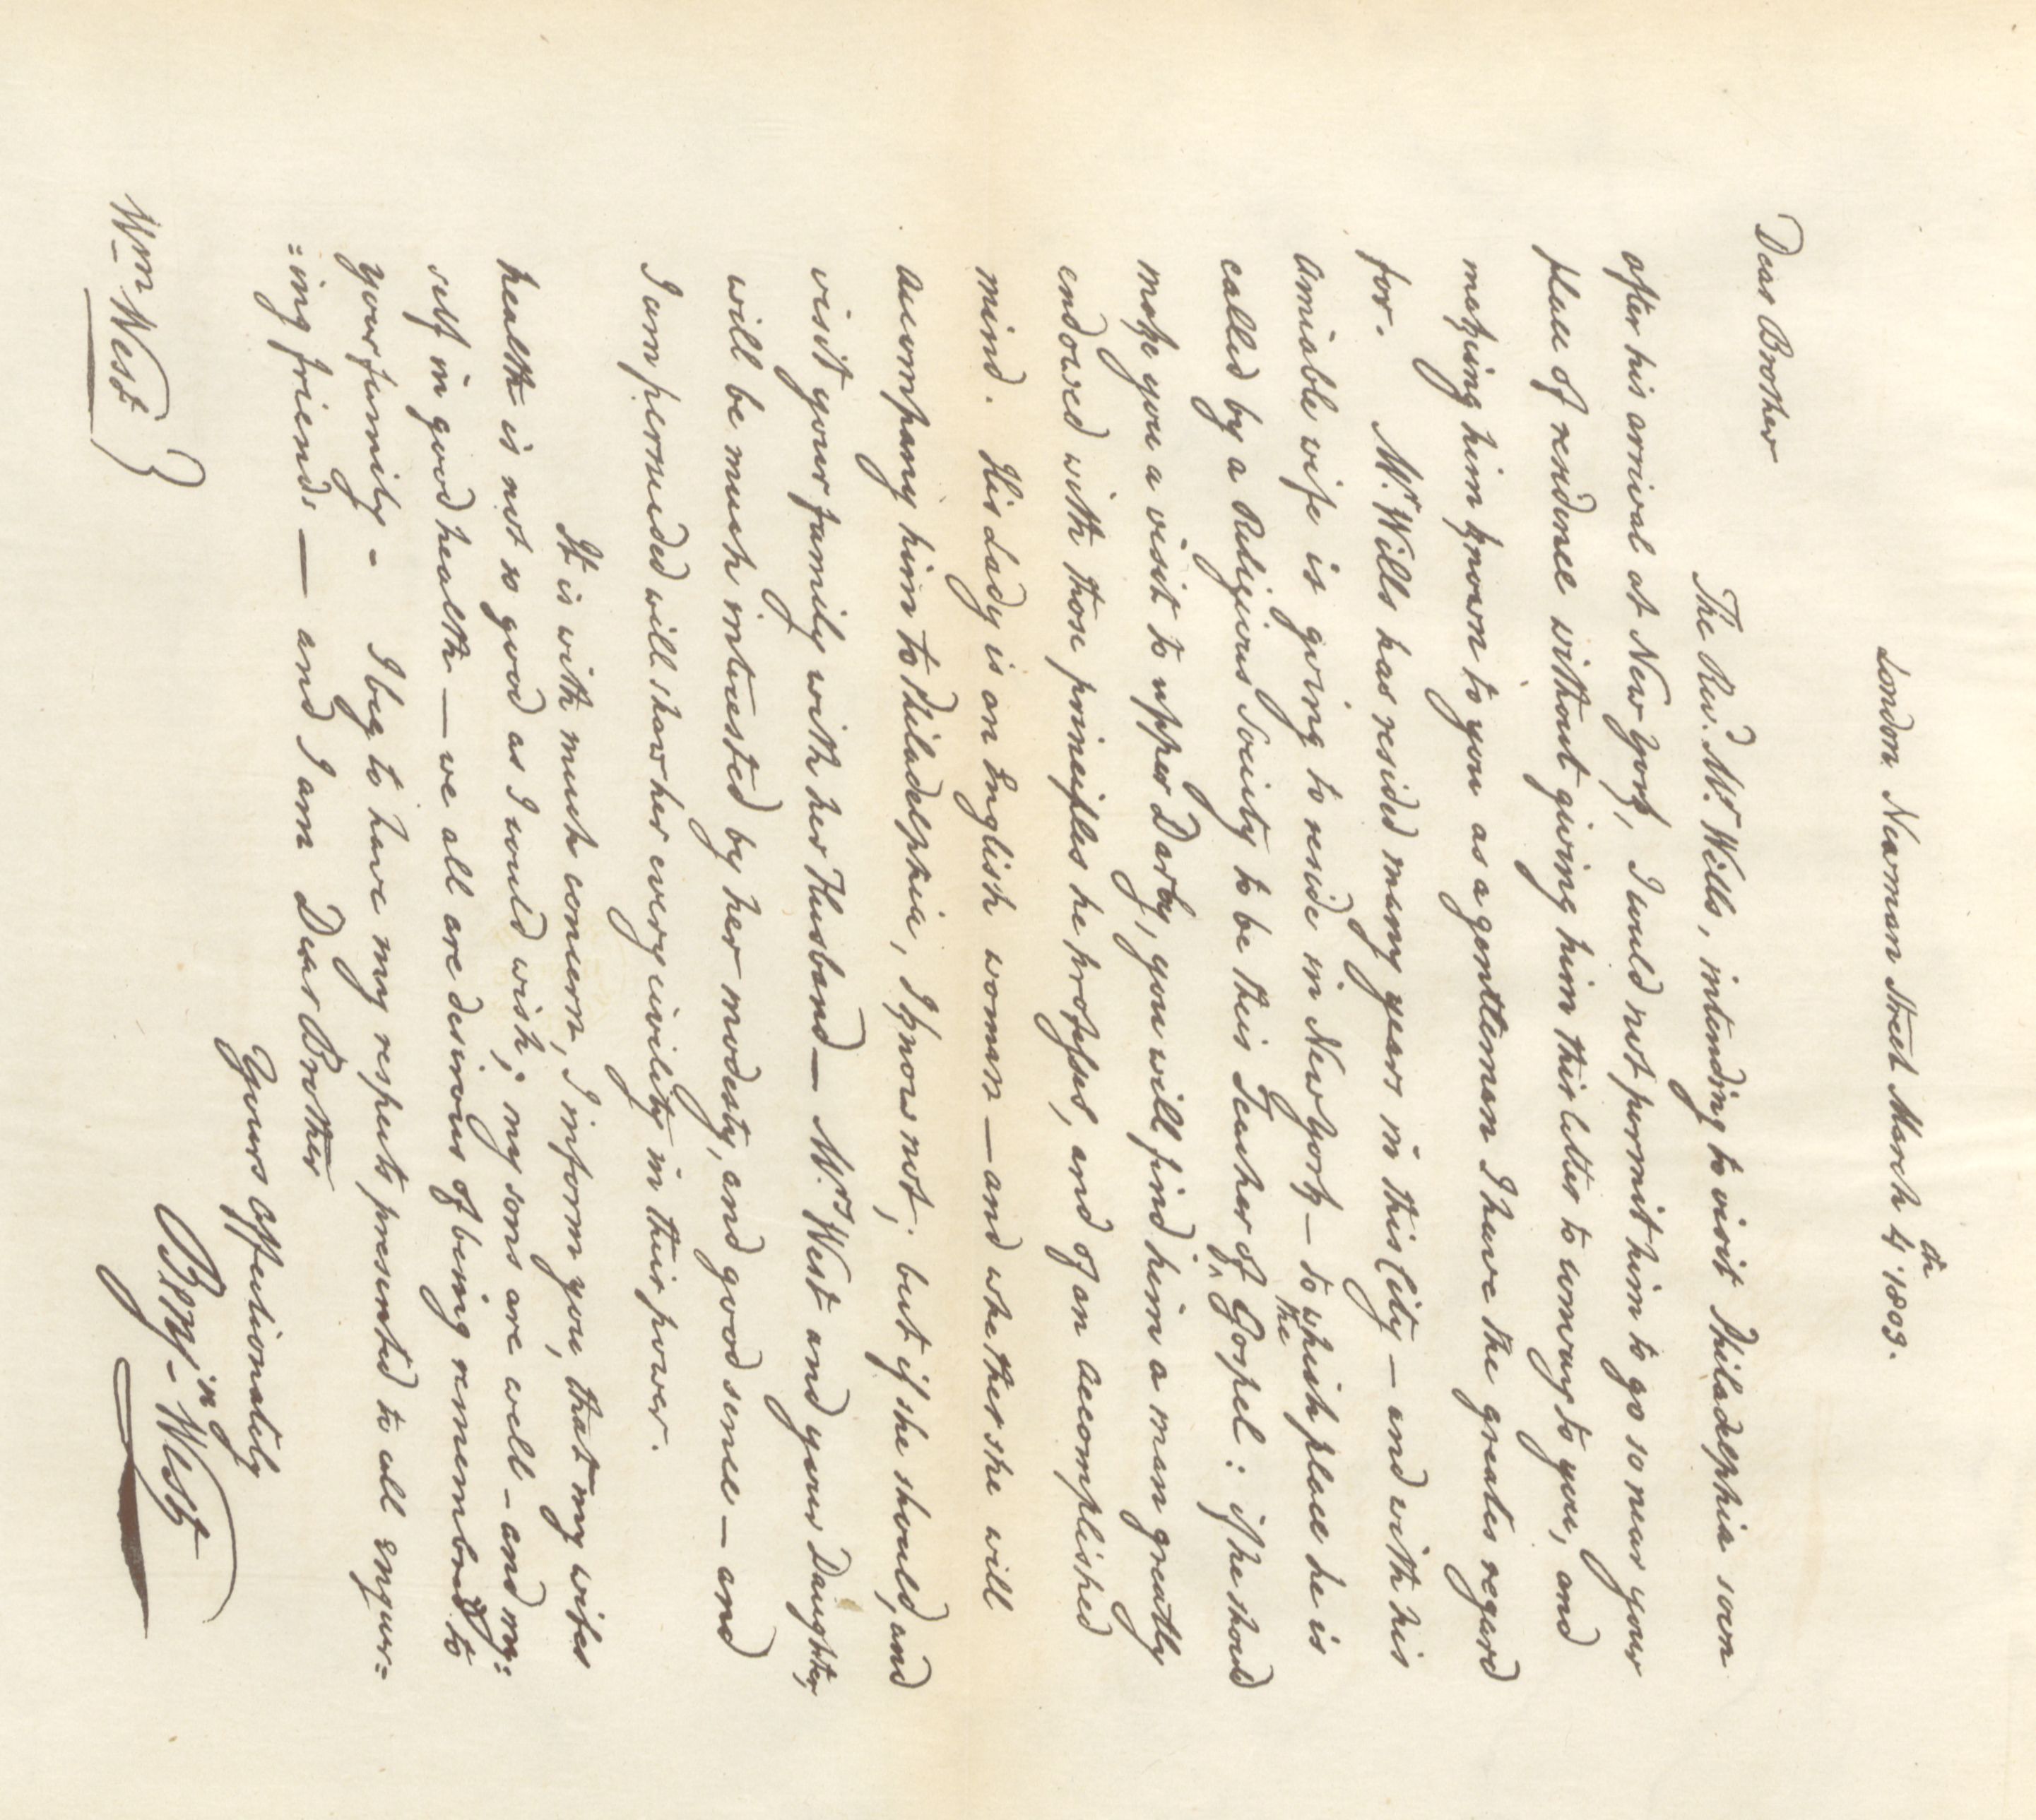 London Newman Street March 4th 1809.
Dear Brother
The Revd. Mr. Wills, intending to visit Philadelphia soon
after his arrival at New York, I could not permit him to go so near your
place of residence without giving him this letter to convay to you, and
making him known to you as a gentleman I have the greates regard
for. Mr. Wills has resided many years in this City — and with his
amiable wife is going to reside in New York — to which place he is
called by a Religious Society to be their Teacher of the Gospel: if he should
make you a visit to upper Darby, you will find him a man greatly
endowed with those principles he professes, and of an accomplished
mind. His Lady is an English woman — and whether she will
accompany him to Philadelphia, I know not; but if she should, and
visit your family with her Husband — Mrs. West and your Daughter,
will be much intrested by her modesty, and good sence — and
I am persuded will show her every civility in their power.
It is with much concern, I inform you, that my wifes
health is not so good as I could wish; my sons are well - and my=
self in good health — we all are desirous of being remembred to
your family - I beg to have my respects presented to all enquir=
=ing friends — and I am Dear Brother
Yours affectionately
Benjn. West
Wm West }